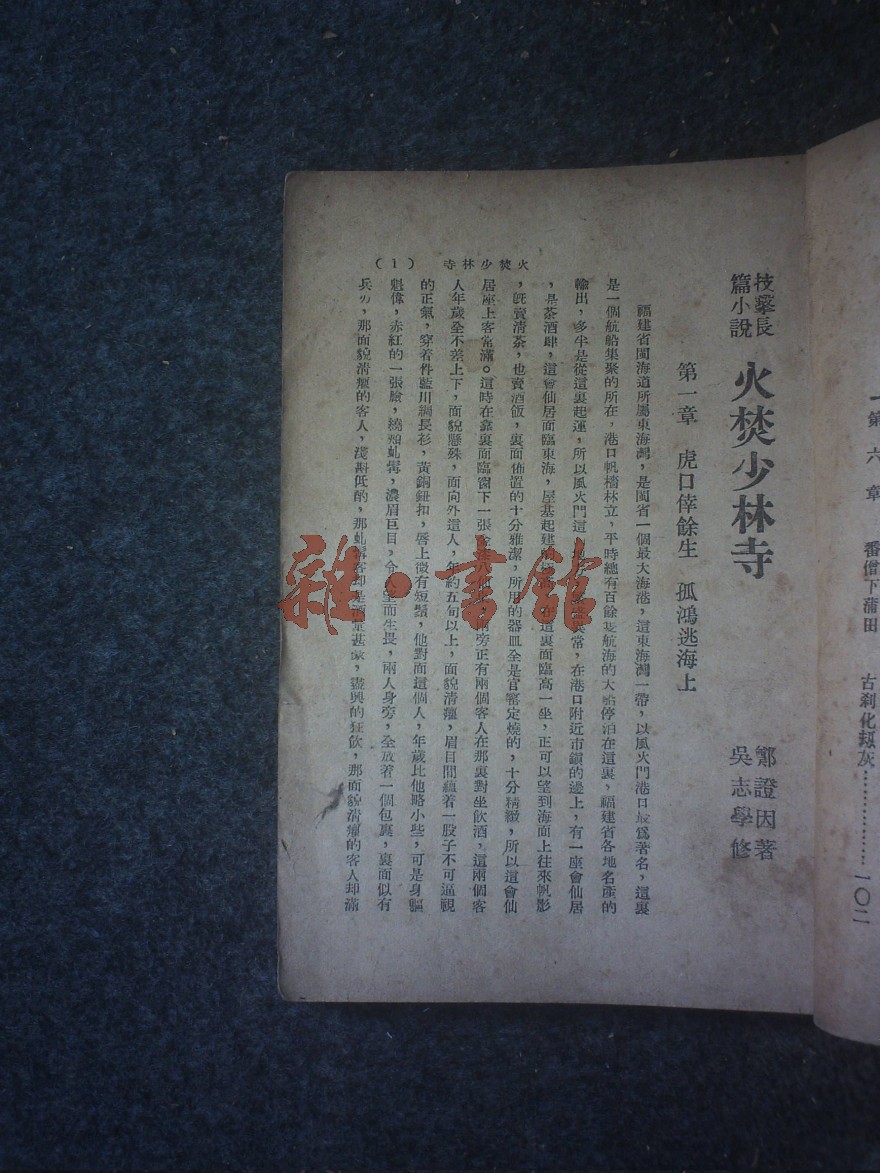 第六章 番僧下蒲田 古刹化刼灰……………一〇二
技擊長
篇小說
火焚少林寺
鄭證因著
吳志學修
第一章 虎口倖餘生 孤鴻逃海上
福建省閩海道所屬東海灣，是閩省一個最大海港，這東海灣一帶，以風火門港口最爲著名，這裏
是一個航船集聚的所在，港口帆檣林立，平時總有百餘隻航海的大船停泊在這裏，福建省各地名產的
輸出，多半是從這裏起運，所以風火門這常，在港口附近市鎮的邊上，有一座會仙居
，是茶酒肆，這會仙居面臨東海，屋基起建的這裏面臨高一坐，正可以望到海面上往來帆影
，旣賣清茶，也賣酒飯，裏面佈置的十分雅潔，所用的器皿全是官窰定燒的，十分精緻，所以這會仙
居座上客常滿。這時在靠裏面臨窗下一張八仙旁正有兩個客人在那裏對坐飲酒，這兩個客
人年歲全不差上下，面貌懸殊，面向外這人，年約五旬以上，面貌清癯，眉目間蘊着一股子不可逼視
的正氣，穿着件藍川綢長衫，黃銅鈕扣，唇上微有短鬚，他對面這個人，年歲比他略小些，可是身軀
魁偉，赤紅的一張臉，繞頰虬髯，濃眉巨目，令人望而生畏，兩人身旁，全放着一個包裹，裏面似有
兵刃，那面貌清癯的客人，淺斟低酌，那虬髯客却是酒量甚豪，盡興的狂飲，那面貌清癯的客人却滿
火焚少林寺 （1）
雜·書館